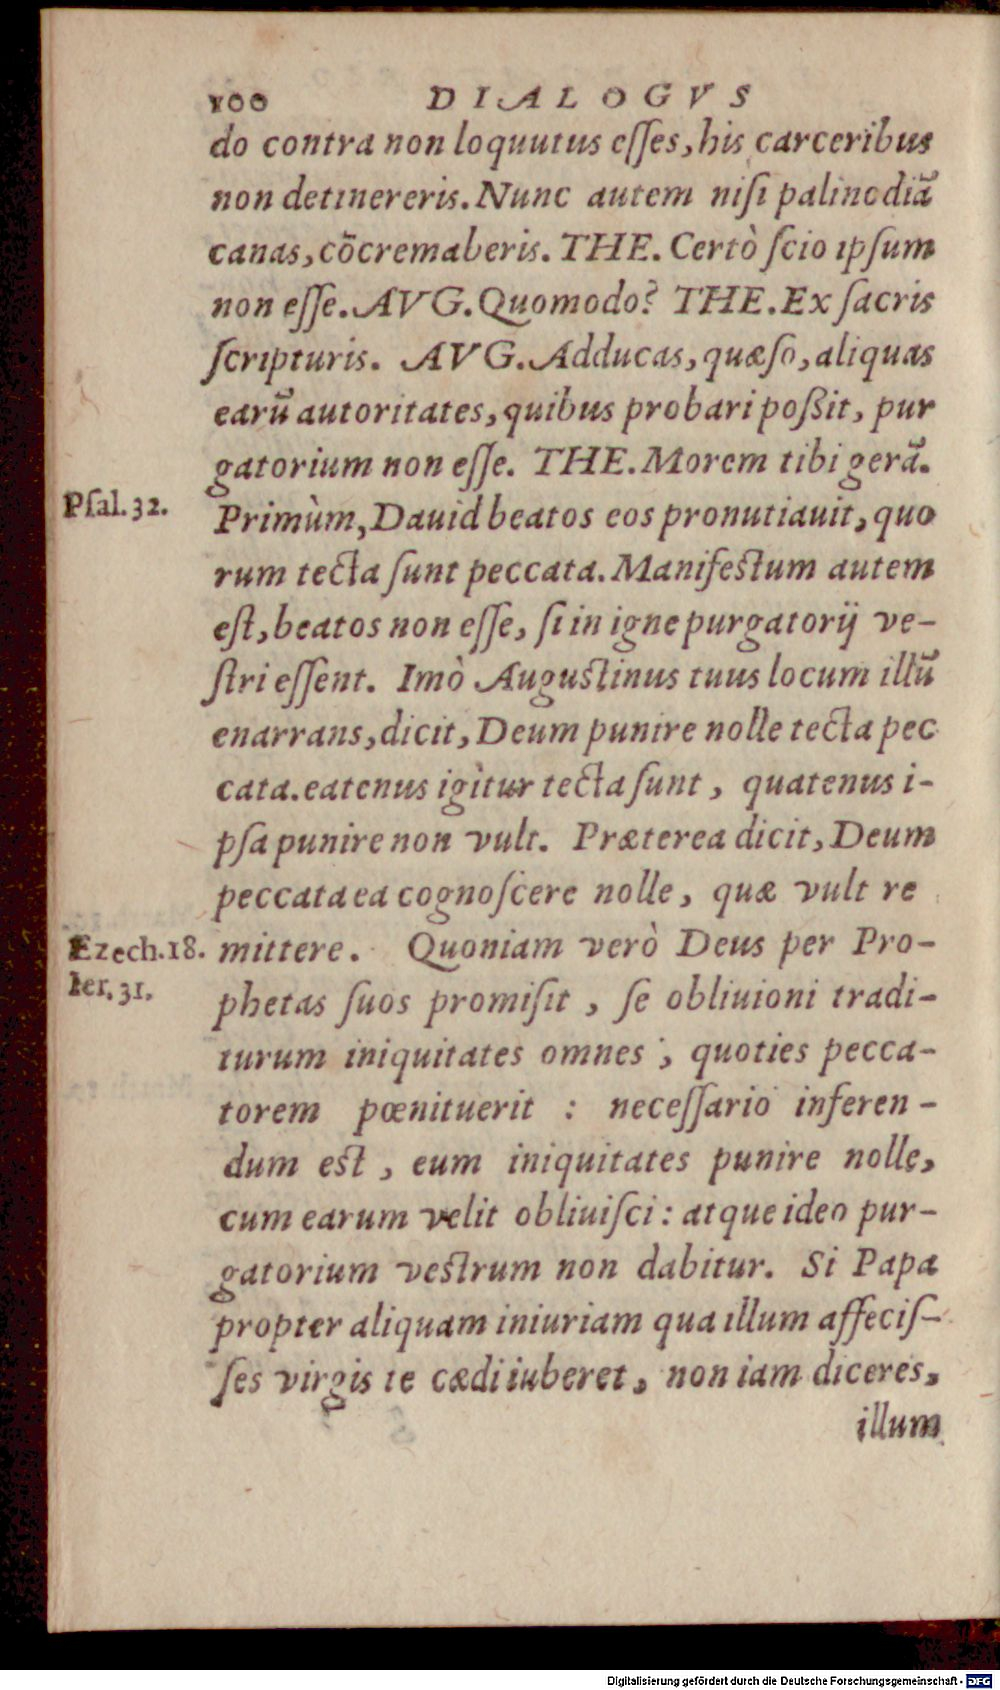 100 DIALOGVS
do contra non loquutus eſſes, his carceribus
non detinereris. Nunc autem niſi palinodiā
canas, cōcremaberis. THE. Certò ſcio ipſum
non eſſe. AVG. Quomodo? THE. Ex ſacris
ſcripturis. AVG. Adducas, quæſo, aliquas
earū autoritates, quibus probari poßit, pur
gatorium non eſſe. THE. Morem tibi gerā.
Psal. 32.
Primùm, Dauid beatos eos pronutiauit, quo
rum tecta ſunt peccata. Manifeſtum autem
eſt, beatos non eſſe, ſi in igne purgatorij ve-
ſtri eſſent. Imò Auguſtinus tuus locum illū
enarrans, dicit, Deum punire nolle tecta pec
cata. eatenus igitur tecta ſunt, quatenus i-
pſa punire non vult. Præterea dicit, Deum
peccata ea cognoſcere nolle, quæ vult re
Ezech. 18.
mittere. Quoniam verò Deus per Pro-
Ier. 31.
phetas ſuos promiſit, ſe obliuioni tradi-
turum iniquitates omnes, quoties pecca-
torem pœnituerit : neceſſario inferen-
dum eſt, eum iniquitates punire nolle,
cum earum velit obliuiſci: atque ideo pur-
gatorium veſtrum non dabitur. Si Papa
propter aliquam iniuriam qua illum affeciſ-
ſes virgis te cædi iuberet, non iam diceres,
illum
Digitalisierung gefördert durch die Deutsche Forschungsgemeinschaft - DFG